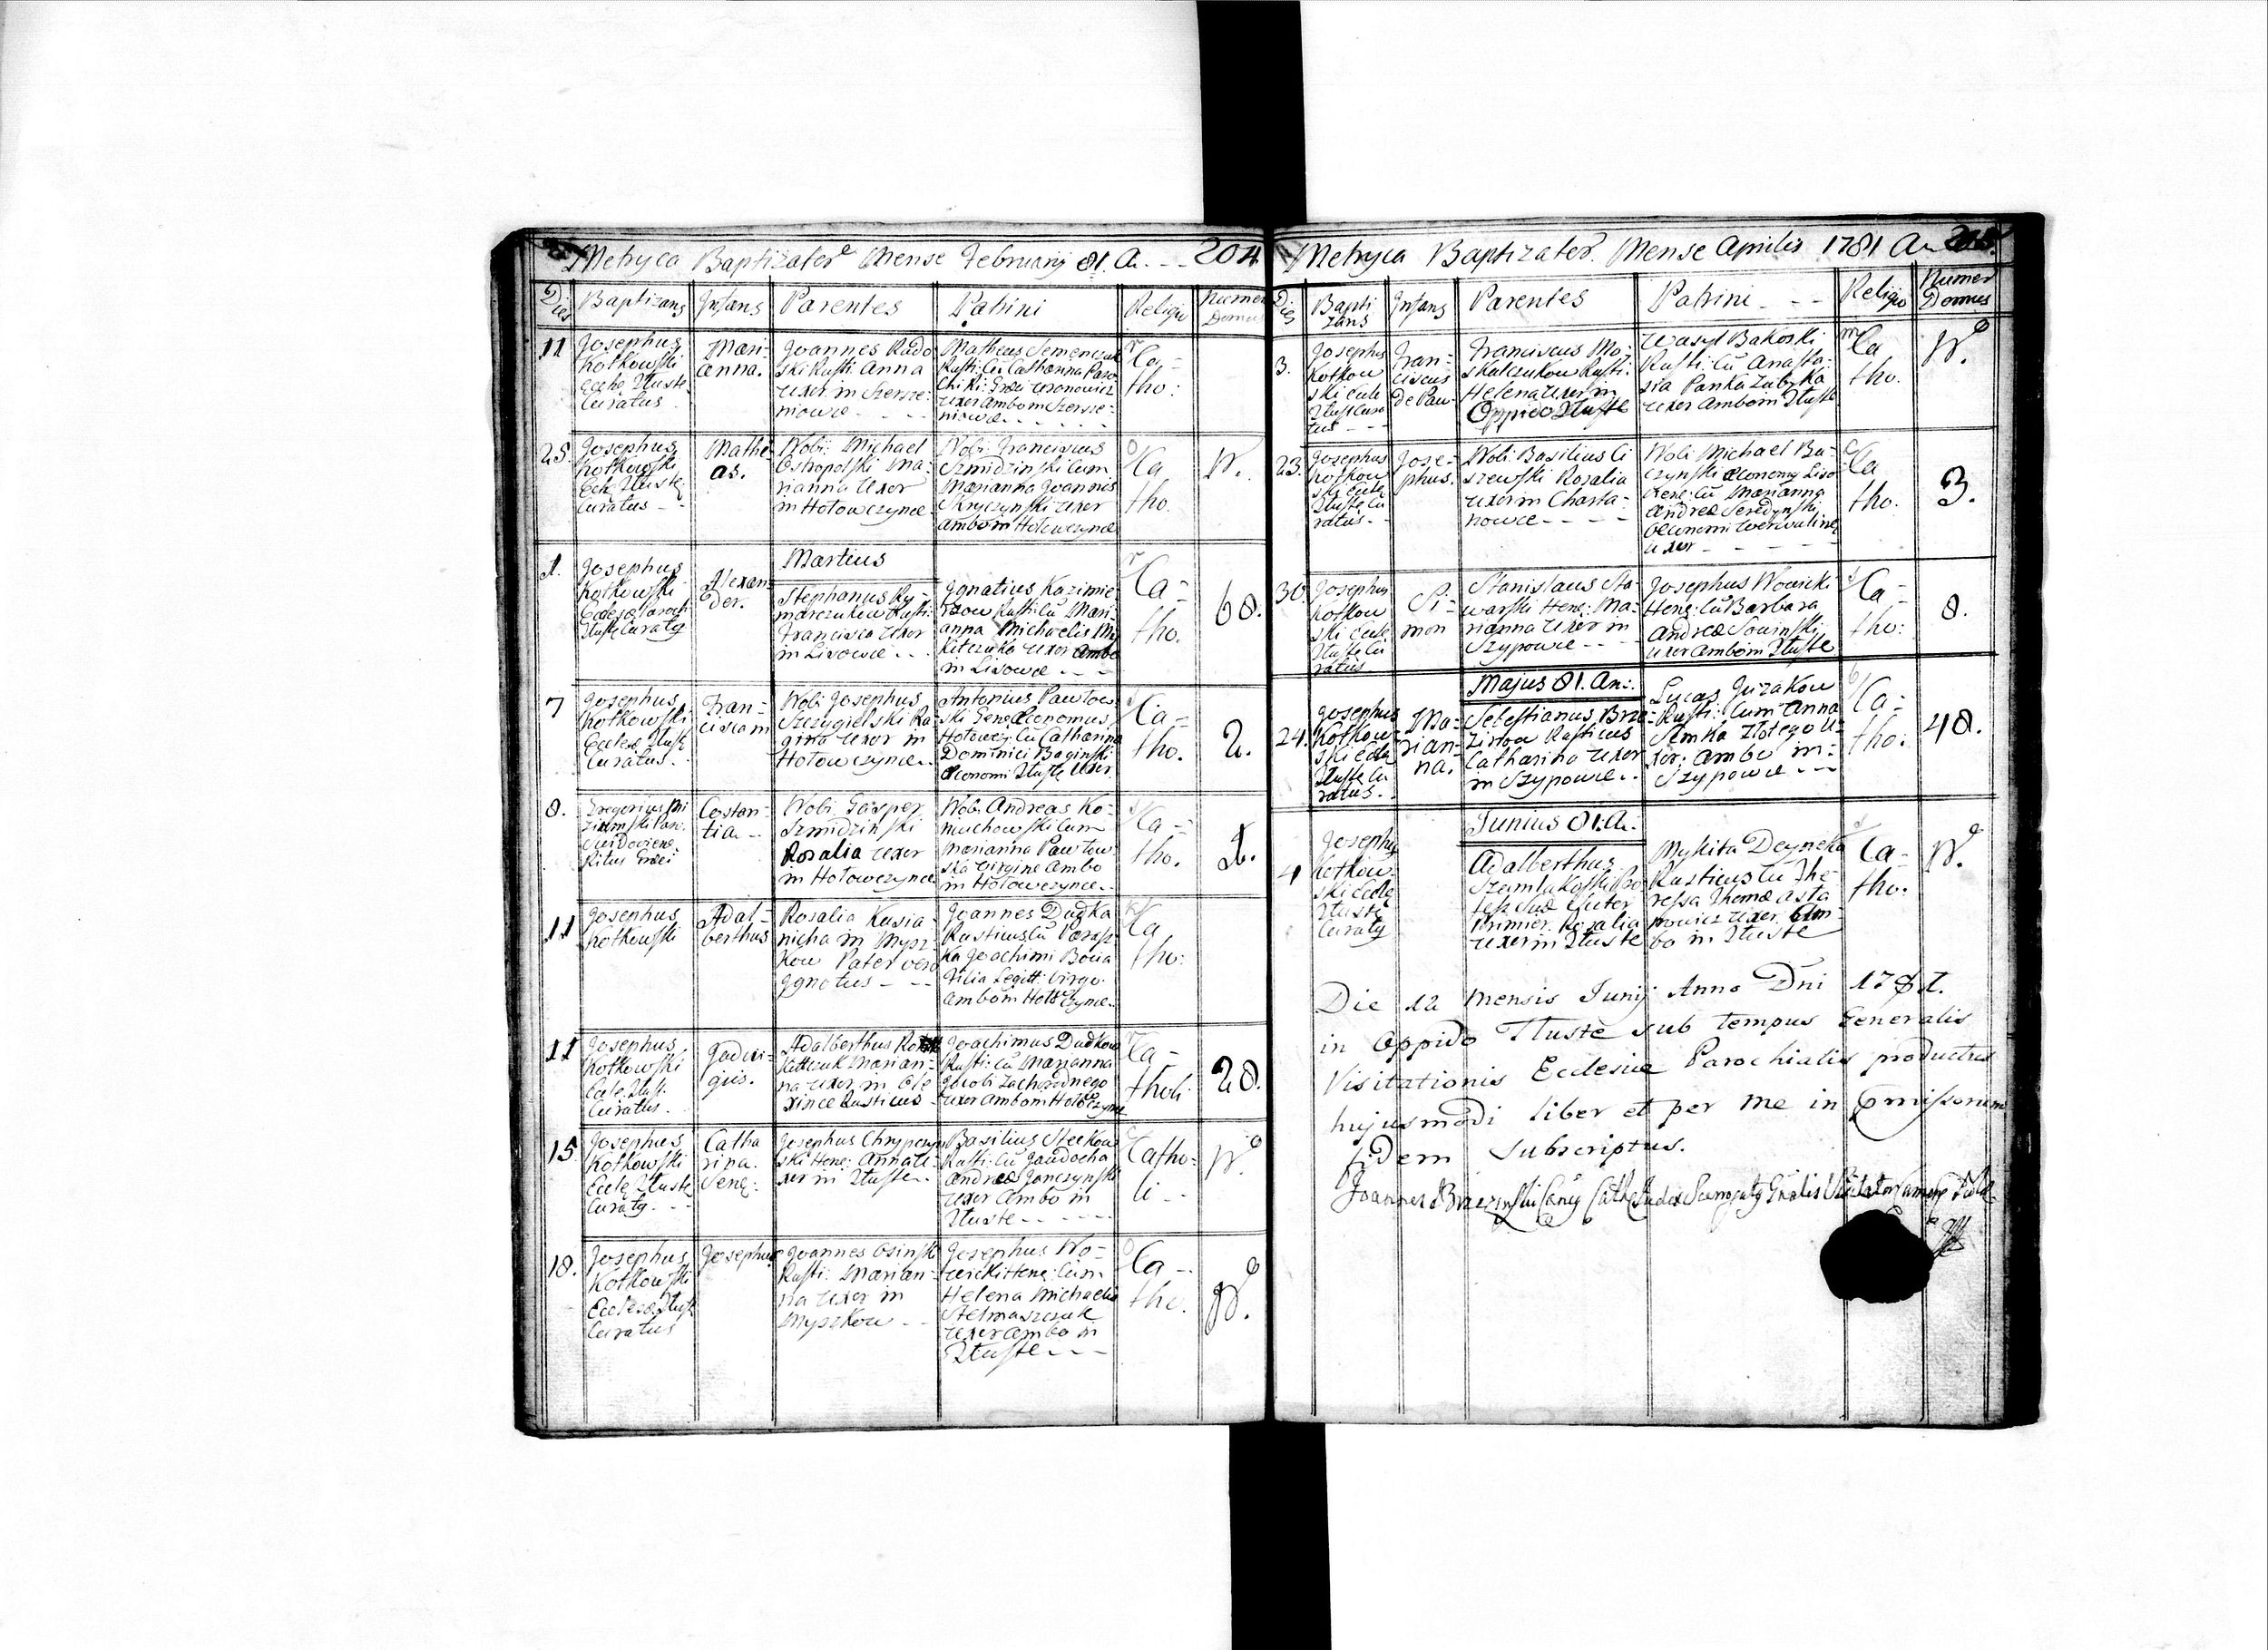 Metryca Baptizator Mense February 81. A. - - 204
Dies Baptizans Infans Parentes Patrini Religio Numer Domus
11 Josephus Kotkowski Eccle Tłuste Curatus
Mari-
anna.
Joannes Rado
ski Rusti: Anna
uxor in Szersze-
niowce - - - -
Matheus Semenczuk
Rusti: Cū Catharina
uxor Ambo in Szersze-
niowce
Ca-
tho:
25. Josephus
Kotkowski
Eccle Tłuste
Curatus - -
Mathe
as.
Nobi: Michael
Ostropolski Ma-
rianna Uxor
in Hołowczynce
Nobi: Franciscus
Szmidzinski Cum
Marianna Joannis
Skryczynski uxor
ambo in Hołowczynce
Ca
tho.
N.
Martius
1. Josephus
Kotkowski
Tłuste Curatg
Alexan-
der.
Stephanus Ry-
marczuków Rusti:
Francisca Uxor
in Lisowce - - -
Ignatius Kazimie
rzow Rusti: Cū Mari-
anna Michaelis My
kitczuka uxor Ambo
in Lisowce - - -
Ca-
tho.
68.
7 Josephus
Kotkowski
Eccles Tłust
Curatus.
Fran-
ciscam
Nobi: Josephus
Szczygielski Re-
gina uxor in
Hołowczynce..
Antonius Pawłow
ski Gene Œconomus
Hołowcz: Cū Catharina
Dominici Baginski
Œconomi Tłuste Uxor
Ca-
tho.
2.
8. Gregorius Mi
Ritus Græci
Costan-
tia - -
Nobi: Gasper
Szmidzinski
Rosalia uxor
in Hołowczynce
Nobi: Andreas Ko-
muchowski Cum
Marianna Pawłow
ska virgine Ambo
in Hołowczynce..
Ca-
tho.
1.
11 Josephus
Kotkowski
Adal-
berthus
Rosalia Kusia
nicha in Mysz-
kow Pater vero
Ignotus - - -
Joannes Dudka
Rusticus Cū Parasz
ka Joachimi Boua
Filia Legitt: Virgo
ambo in Hołowczynce..
Ca
tho:
11 Josephus
Kotkowski
Eccle Tłust.
Curatus.
Jadwi-
gis.
Adalberthus
Marian-
na uxor in Ole
xince Rusticus
Joachimus Dudkow
Rusti: Cū Marianna
Jacobi Zachorodnego
uxor ambo in Hołowczynce
Ca-
tholi
28.
15. Josephus
Kotkowski
Eccle Tłuste
Curatg - - -
Catha
rina.
Gene:
Josephus
ski Hene: Anna U-
xor in Tłuste..
Basilius Steckow
Rusti: Cū Jaudocha
Andreæ Jonczynski
uxor Ambo in
Tłuste - - - - -
Catho-
li - -
No.
18. Josephus
Kotkowski
Ecclesæ Tłust
Curatus
Josephus
Joannes Osinski
Rusti: Marian-
na Uxor in
Myszkow - -
Josephus No-
wicki Hene: Cum
Helena Michaelis
Stelmaszczuk
uxor ambo in
Tłuste - - -
Ca-
tho.
No.
Metryca Baptizator. Mense Aprilis 1781 An 205.
Dies Bapti zans Infans Parentes Patrini - - - Religio Numer Domus
3. Josephus
Kotkow
ski Eccle
Tłust Cura
tus - - -
Fran-
ciscus
de Pau-
Franciscus Mo-
skalczukow Rusti:
Helena Uxor in
Oppido Tłuste
Wasyl Bakoski
Rusti: Cū Anasta-
sia Panka Zabyka
uxor ambo in Tłuste
Ca
tho.
No.
23. Josephus
Kotkow
ski Eccle
Tłuste Cu
ratus - -
Jose-
phus.
Nobi: Basilius Ci
szewski Rosalia
uxor in Charta-
nowce - - - -
Nobi: Michael Ba-
czynski Œconomg Liso
Cū Marianna
Andreæ Seredynski
Œconomi
uxor - - - - -
Ca
tho.
3.
30. Josephus
Kotkow
ski Eccle
Tłuste Cu
ratus
Si-
mon
Stanislaus Sta-
warski Hene: Ma-
rianna Uxor in
Szypowce - - -
Josephus Nowicki
Hene: Cū Barbara
Andreæ Sowinski
uxor ambo in Tłuste
Ca-
tho:
8.
Majus 81. An:.
24. Josephus
Kotkow-
ski Eccle
Tłuste Cu
ratus.
Ma-
rian-
na.
Sebestianus Brze-
zinow Rusticus
Catharina Uxor
in Szypowce..
Lucas Juzakow
Rusti: Cum Anna
Semka Złotego U-
xor: Ambo in:
Szypowce - - -
Ca-
tho:
48.
Junius 81. A:.
4 Josephg
Kotkow-
ski Eccle
Tłuste
Curatg
Adalberthus
Rosalia
uxor in Tłuste
Mykita Deyneka
Rusticus Cū The-
ressa Thomæ Asta
powicz uxor Am-
bo in Tłuste
Ca-
tho.
No.
Die 12 Mensis Junij Anno Dni 1781.
in Oppido Tłuste sub tempus Generalis
Visitationis Ecclesiæ Parochialis productus
hujusmodi liber et per me in Comissorum
fidem Subscriptus.
Joannes Brzezinski